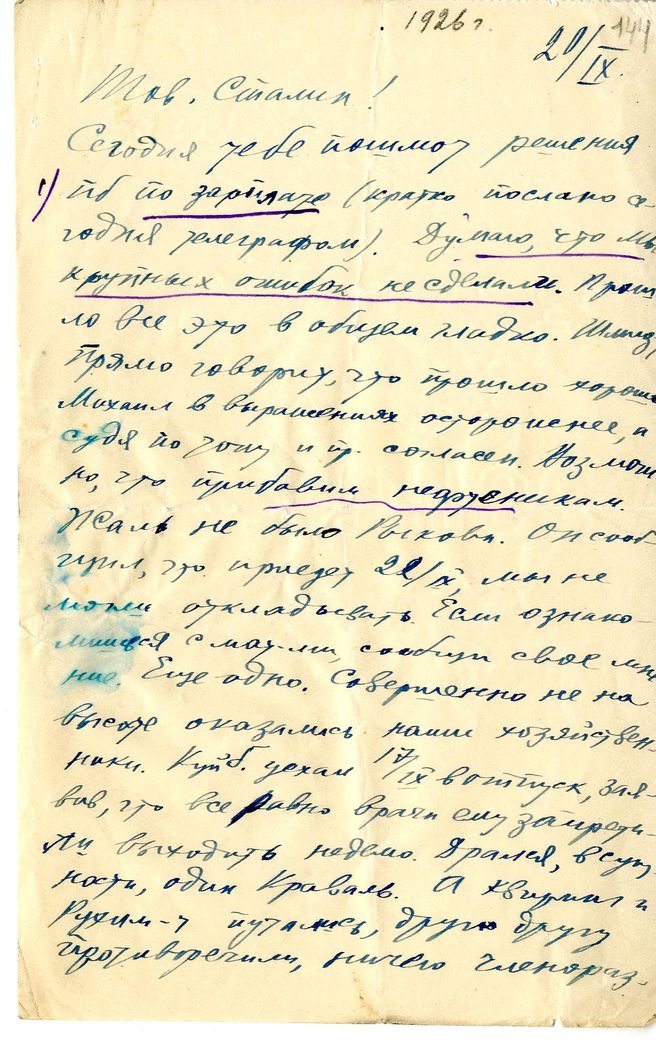 1926 г.
144
20/IX.
Тов. Сталин!
Сегодня тебе пошлют решения
1) ПБ по зарплате (кратко послано се-
годня телеграфом). Думаю, что мы
крупных ошибок не сделали. Прош-
ло все это в общем гладко. Шмидт
прямо говорит, что прошло хорошо
Михаил в выражениях осторожнее, и
судя по тону и пр. согласен. Возмож-
но, что прибавим нефтеникам.
Жаль не было Рыкова. Он сооб-
щил, что приедет 22/IX, мы не
могли откладывать. Если ознако-
мишься с мат-ми, сообщи свое мне-
ние. Еще одно. Совершенно не на
высоте оказались наши хозяйствен-
ники. Куйб. уехал 17/IX в отпуск, зая-
вив, что все равно врачи ему запрети-
ли выходить неделю. Дрался, в сущ-
ности, один Краваль. А Квиринг и
Рухим-ч путались, друг другу
противоречили, ничего членораз-